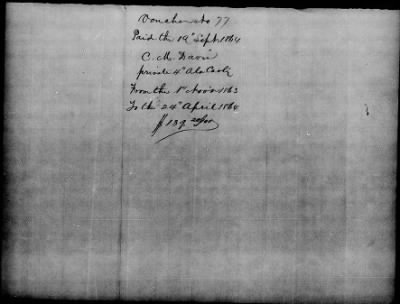 Voucher No 77
Paid the 19" Sept. 1864
C. M. Davis
private 4" Ala Cavly
From the 1" Nov'r 1863
To the 24" April 1864
$139 20/100